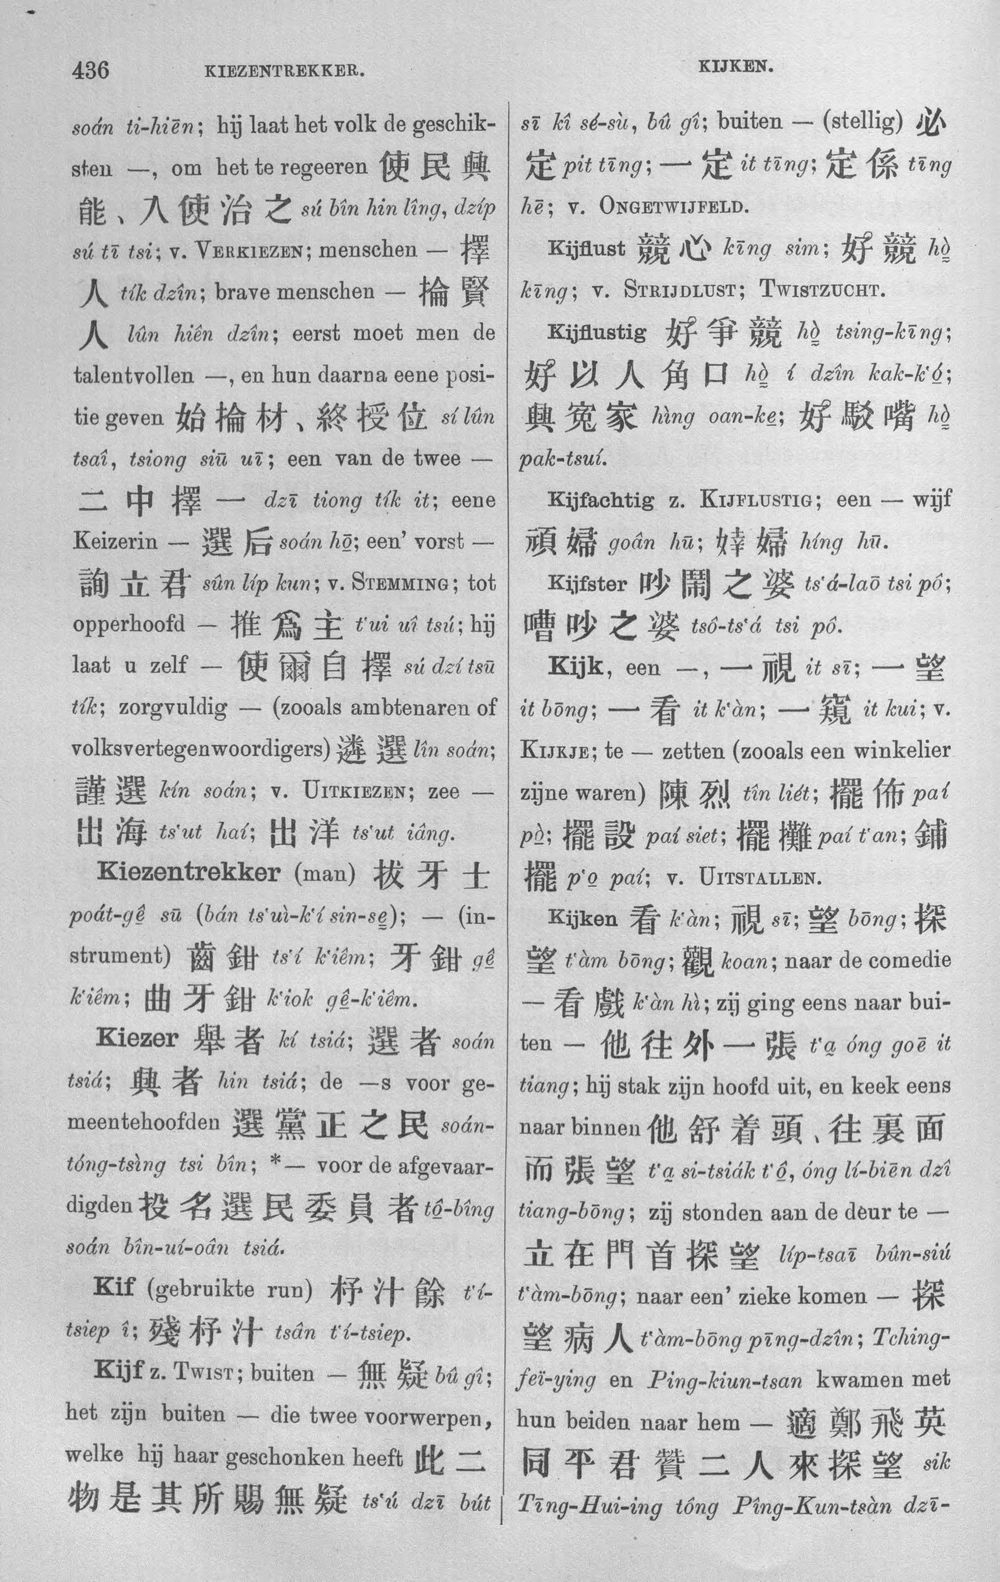 436
KIEZENTREKKER.
KIJKEN.
soán ti-hiēn; hij laat het volk de geschik-
sten —, om het te regeeren 使民興
能、入使治之 sú bîn hin lîng, dzíp
sú tī tsi; v. VERKIEZEN; menschen — 擇
人 tík dzîn; brave menschen — 掄賢
人 lûn hiên dzîn; eerst moet men de
talentvollen —, en hun daarna eene posi-
tie geven 始掄材、終授位 sí lûn
tsaî, tsiong siū uī; een van de twee —
二中擇一 dzī tiong tík it; eene
Keizerin — 選后 soán hō; een' vorst —
詢立君 sûn líp kun; v. STEMMING; tot
opperhoofd — 推爲主 t'ui uî tsú; hij
laat u zelf — 使爾自擇 sú dzí tsū
tík; zorgvuldig — (zooals ambtenaren of
volksvertegenwoordigers) 遴選 lîn soán;
謹選 kín soán; v. UITKIEZEN; zee —
出海 ts'ut haí; 出洋 ts'ut iâng.
Kiezentrekker (man) 拔牙士
poát-gê sū (bán ts'uì-k'í sin-se); — (in-
strument) 齒鉗 ts'í k'iêm; 牙鉗 gê
k'iêm; 曲牙鉗 k'iok gê-k'iêm.
Kiezer 舉者 kí tsiá; 選者 soán
tsiá; 興者 hin tsiá; de —s voor ge-
meentehoofden 選黨正之民 soán-
tóng-tsìng tsi bîn; *— voor de afgevaar-
digden 投名選民委員者 tô-bîng
soán bîn-uí-oân tsiá.
Kif (gebruikte run) 杼汁餘 t'í-
tsiep î; 殘杼汁 tsân t'í-tsiep.
Kijf z. TWIST; buiten — 無疑 bû gî;
het zijn buiten — die twee voorwerpen,
welke hij haar geschonken heeft 此二
物是其所賜無疑 ts'ú dzī bút
sī kî sé-sù, bû gî; buiten — (stellig) 必
定 pit tīng; 一定 it tīng; 定係 tīng
hē; v. ONGETWIJFELD.
Kijflust 競心 kīng sim; 好競 hò
kīng; v. STRIJDLUST; TWISTZUCHT.
Kijflustig 好爭競 hò tsing-kīng;
好以人角口 hò í dzîn kak-k'ó;
興寃家 hìng oan-ke; 好駁嘴 hò
pak-tsuí.
Kijfachtig z. KIJFLUSTIG; een — wijf
頑婦 goân hū; 婞婦 híng hū.
Kijfster 吵鬧之婆 ts'á-laō tsi pô;
嘈吵之婆 tsô-ts'á tsi pô.
Kijk, een —, 一視 it sī; 一望
it bōng; 一看 it k'àn; 一窺 it kui; v.
KIJKJE; te — zetten (zooals een winkelier
zijne waren) 陳烈 tîn liét; 擺佈 paí
pò; 擺設 paí siet; 擺攤 paí t'an; 鋪
擺 p'o paí; v. UITSTALLEN.
Kijken 看 k'àn; 視 sī; 望 bōng; 探
望 t'àm bōng; 觀 koan; naar de comedie
— 看戲 k'àn hì; zij ging eens naar bui-
ten — 他往外一張 t'a óng goē it
tiang; hij stak zijn hoofd uit, en keek eens
naar binnen 他舒着頭、往裏面
而張望 t'a si-tsiák t'ô, óng lí-biēn dzî
tiang-bōng; zij stonden aan de deur te —
立在門首探望 líp-tsaī bûn-siú
t'àm-bōng; naar een' zieke komen — 探
望病人 t'àm-bōng pīng-dzîn; Tching-
feï-ying en Ping-kiun-tsan kwamen met
hun beiden naar hem — 適鄭飛英
同平君贊二人來探望 sik
Tīng-Hui-ing tóng Pîng-Kun-tsàn dzī-